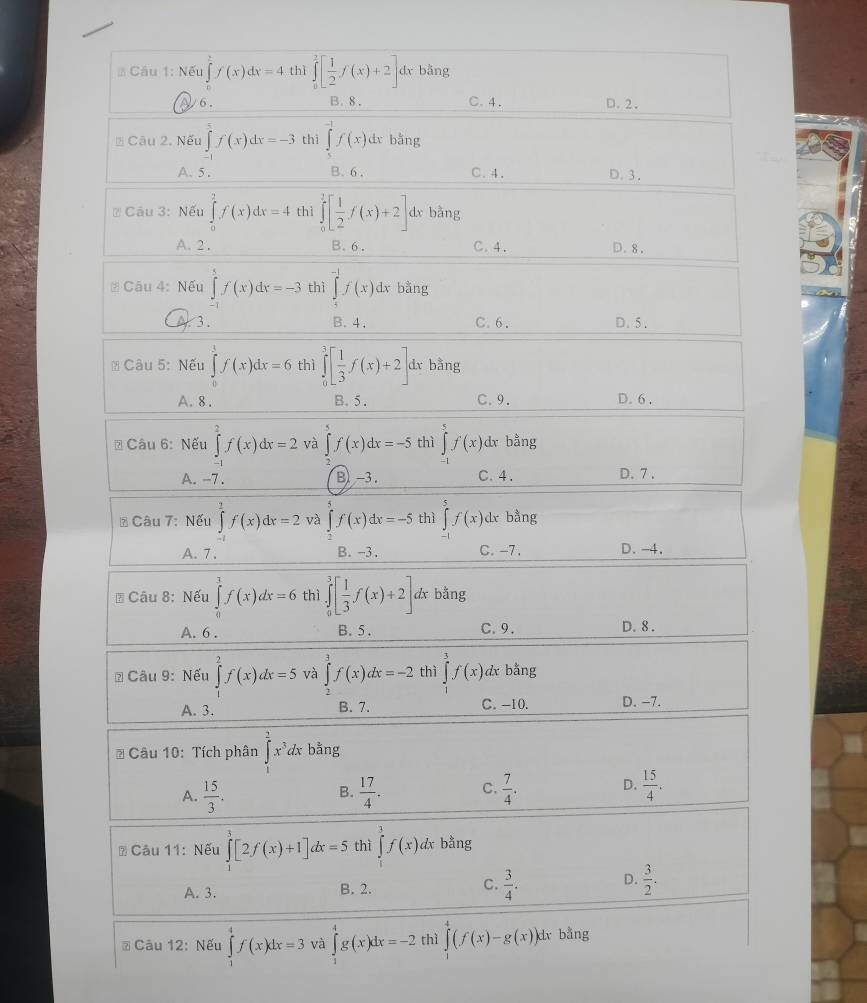 Câu 1: Nếu ∫₀² f(x)dx = 4 thì ∫₀² [1/2 f(x) + 2]dx bằng
A. 6. B. 8. C. 4. D. 2.
Câu 2. Nếu ∫₋₁⁵ f(x)dx = −3 thì ∫₅⁻¹ f(x)dx bằng
A. 5. B. 6. C. 4. D. 3.
Câu 3: Nếu ∫₀² f(x)dx = 4 thì ∫₀² [1/2 f(x) + 2]dx bằng
A. 2. B. 6. C. 4. D. 8.
Câu 4: Nếu ∫₋₁⁵ f(x)dx = −3 thì ∫₅⁻¹ f(x)dx bằng
A. 3. B. 4. C. 6. D. 5.
Câu 5: Nếu ∫₀³ f(x)dx = 6 thì ∫₀³ [1/3 f(x) + 2]dx bằng
A. 8. B. 5. C. 9. D. 6.
Câu 6: Nếu ∫₋₁² f(x)dx = 2 và ∫₂⁵ f(x)dx = −5 thì ∫₋₁⁵ f(x)dx bằng
A. −7. B. −3. C. 4. D. 7.
Câu 7: Nếu ∫₋₁² f(x)dx = 2 và ∫₂⁵ f(x)dx = −5 thì ∫₋₁⁵ f(x)dx bằng
A. 7. B. −3. C. −7. D. −4.
Câu 8: Nếu ∫₀³ f(x)dx = 6 thì ∫₀³ [1/3 f(x) + 2]dx bằng
A. 6. B. 5. C. 9. D. 8.
Câu 9: Nếu ∫₁² f(x)dx = 5 và ∫₂³ f(x)dx = −2 thì ∫₁³ f(x)dx bằng
A. 3. B. 7. C. −10. D. −7.
Câu 10: Tích phân ∫₁² x³dx bằng
A. 15/3. B. 17/4. C. 7/4. D. 15/4.
Câu 11: Nếu ∫₁³ [2f(x) + 1]dx = 5 thì ∫₁³ f(x)dx bằng
A. 3. B. 2. C. 3/4. D. 3/2.
Câu 12: Nếu ∫₁⁴ f(x)dx = 3 và ∫₁⁴ g(x)dx = −2 thì ∫₁⁴ (f(x) − g(x))dx bằng